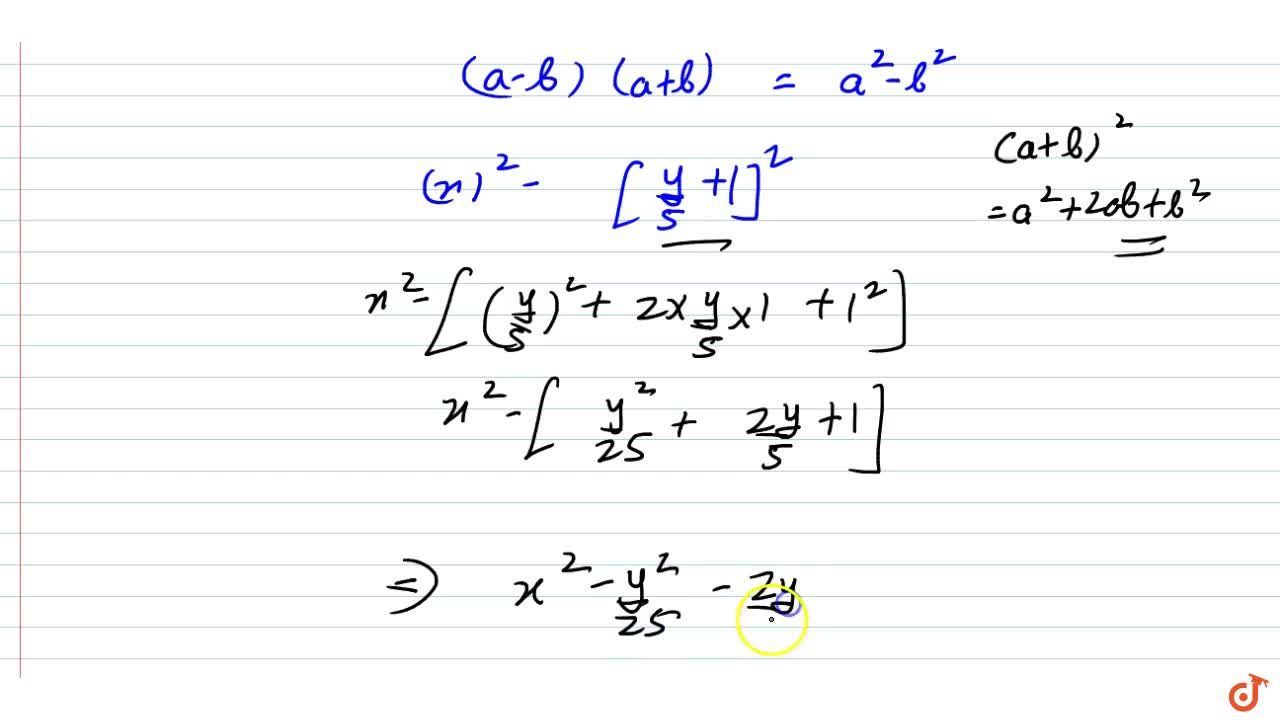 (a-b) (a+b) = a²-b²
(x)² - [y/5 +1]²
(a+b)²
= a²+2ab+b²
x²- [(y/5)² + 2×y/5×1 + 1²]
x² - [y²/25 + 2y/5 +1]
⇒ x² - y²/25 - 2y